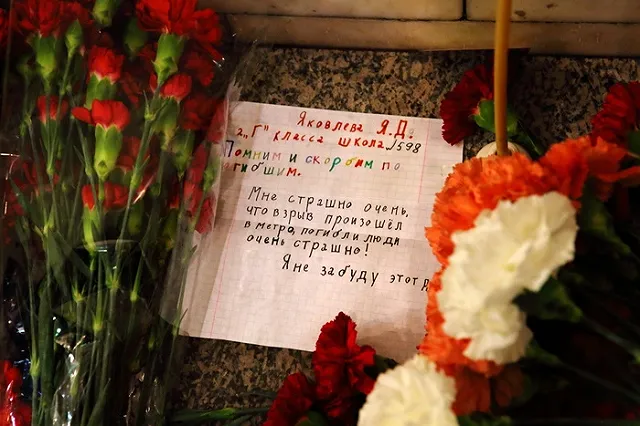 Яковлева Я.Д.
2 „Г" класса школа 1598
Помним и скорбим по
гибшим.
Мне страшно очень,
что взрыв произошёл
в метро, погибли люди
очень страшно!
Я не забуду этот